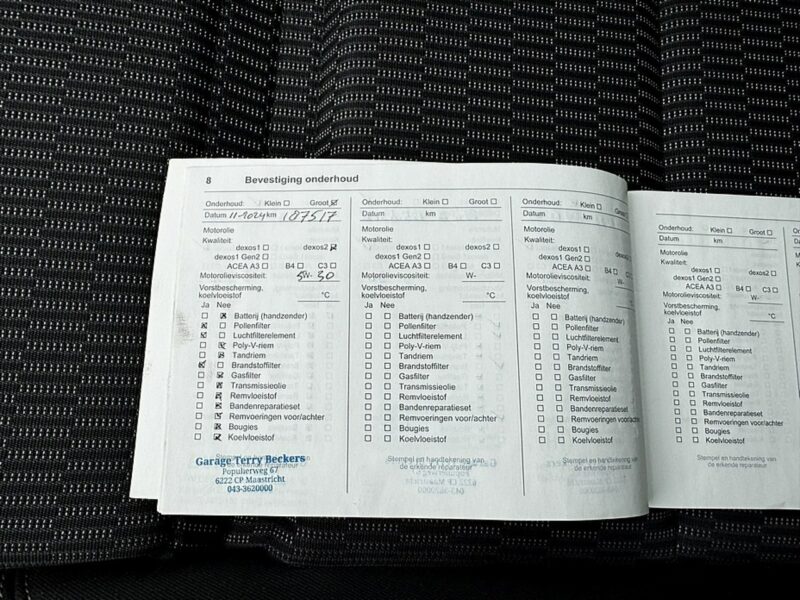 8 Bevestiging onderhoud
Onderhoud: Klein Groot
Datum 11-2024 km 187517
Motorolie
Kwaliteit:
dexos1 dexos2
dexos1 Gen2
ACEA A3 B4 C3
Motorolieviscositeit: 5W-30
Vorstbescherming,
koelvloeistof °C
Ja Nee
Batterij (handzender)
Pollenfilter
Luchtfilterelement
Poly-V-riem
Tandriem
Brandstoffilter
Gasfilter
Transmissieolie
Remvloeistof
Bandenreparatieset
Remvoeringen voor/achter
Bougies
Koelvloeistof
Garage Terry Beckers
Populierweg 67
6222 CP Maastricht
043-3620000
Onderhoud: Klein Groot
Datum km
Motorolie
Kwaliteit:
dexos1 dexos2
dexos1 Gen2
ACEA A3 B4 C3
Motorolieviscositeit: W-
Vorstbescherming,
koelvloeistof °C
Ja Nee
Batterij (handzender)
Pollenfilter
Luchtfilterelement
Poly-V-riem
Tandriem
Brandstoffilter
Gasfilter
Transmissieolie
Remvloeistof
Bandenreparatieset
Remvoeringen voor/achter
Bougies
Koelvloeistof
Stempel en handtekening van
de erkende reparateur
Onderhoud: Klein Groot
Datum km
Motorolie
Kwaliteit:
dexos1 dexos2
dexos1 Gen2
ACEA A3 B4 C3
Motorolieviscositeit: W-
Vorstbescherming,
koelvloeistof °C
Ja Nee
Batterij (handzender)
Pollenfilter
Luchtfilterelement
Poly-V-riem
Tandriem
Brandstoffilter
Gasfilter
Transmissieolie
Remvloeistof
Bandenreparatieset
Remvoeringen voor/achter
Bougies
Koelvloeistof
Stempel en handtekening van
de erkende reparateur
Onderhoud: Klein Groot
Datum km
Motorolie
Kwaliteit:
dexos1 dexos2
dexos1 Gen2
ACEA A3 B4 C3
Motorolieviscositeit: W-
Vorstbescherming,
koelvloeistof °C
Ja Nee
Batterij (handzender)
Pollenfilter
Luchtfilterelement
Poly-V-riem
Tandriem
Brandstoffilter
Gasfilter
Transmissieolie
Remvloeistof
Bandenreparatieset
Remvoeringen voor/achter
Bougies
Koelvloeistof
Stempel en handtekening van
de erkende reparateur